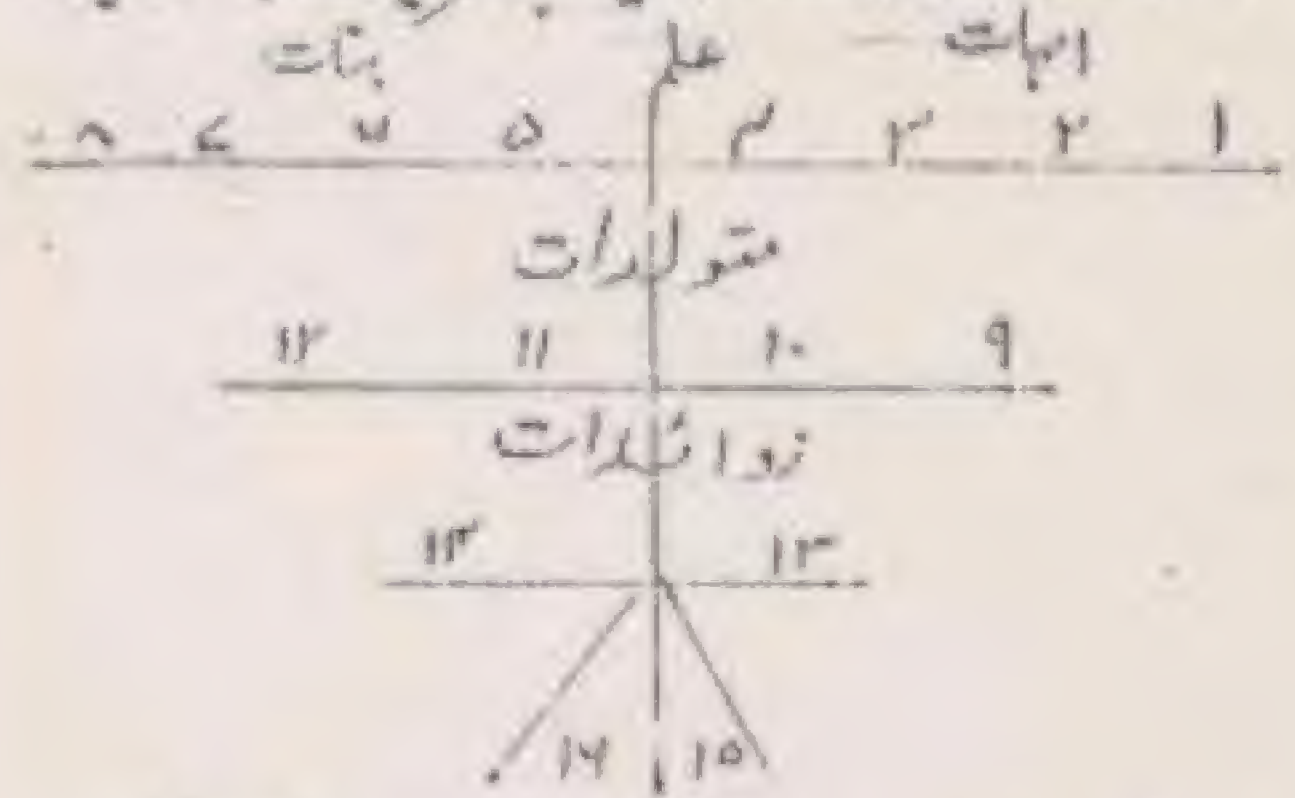 امہات علم بنات
۱ ۲ ۳ ۴ ۵ ۶ ۷ ۸
متولدات
۹ ۱۰ ۱۱ ۱۲
زوائدات
۱۳ ۱۴
۱۵ ۱۶